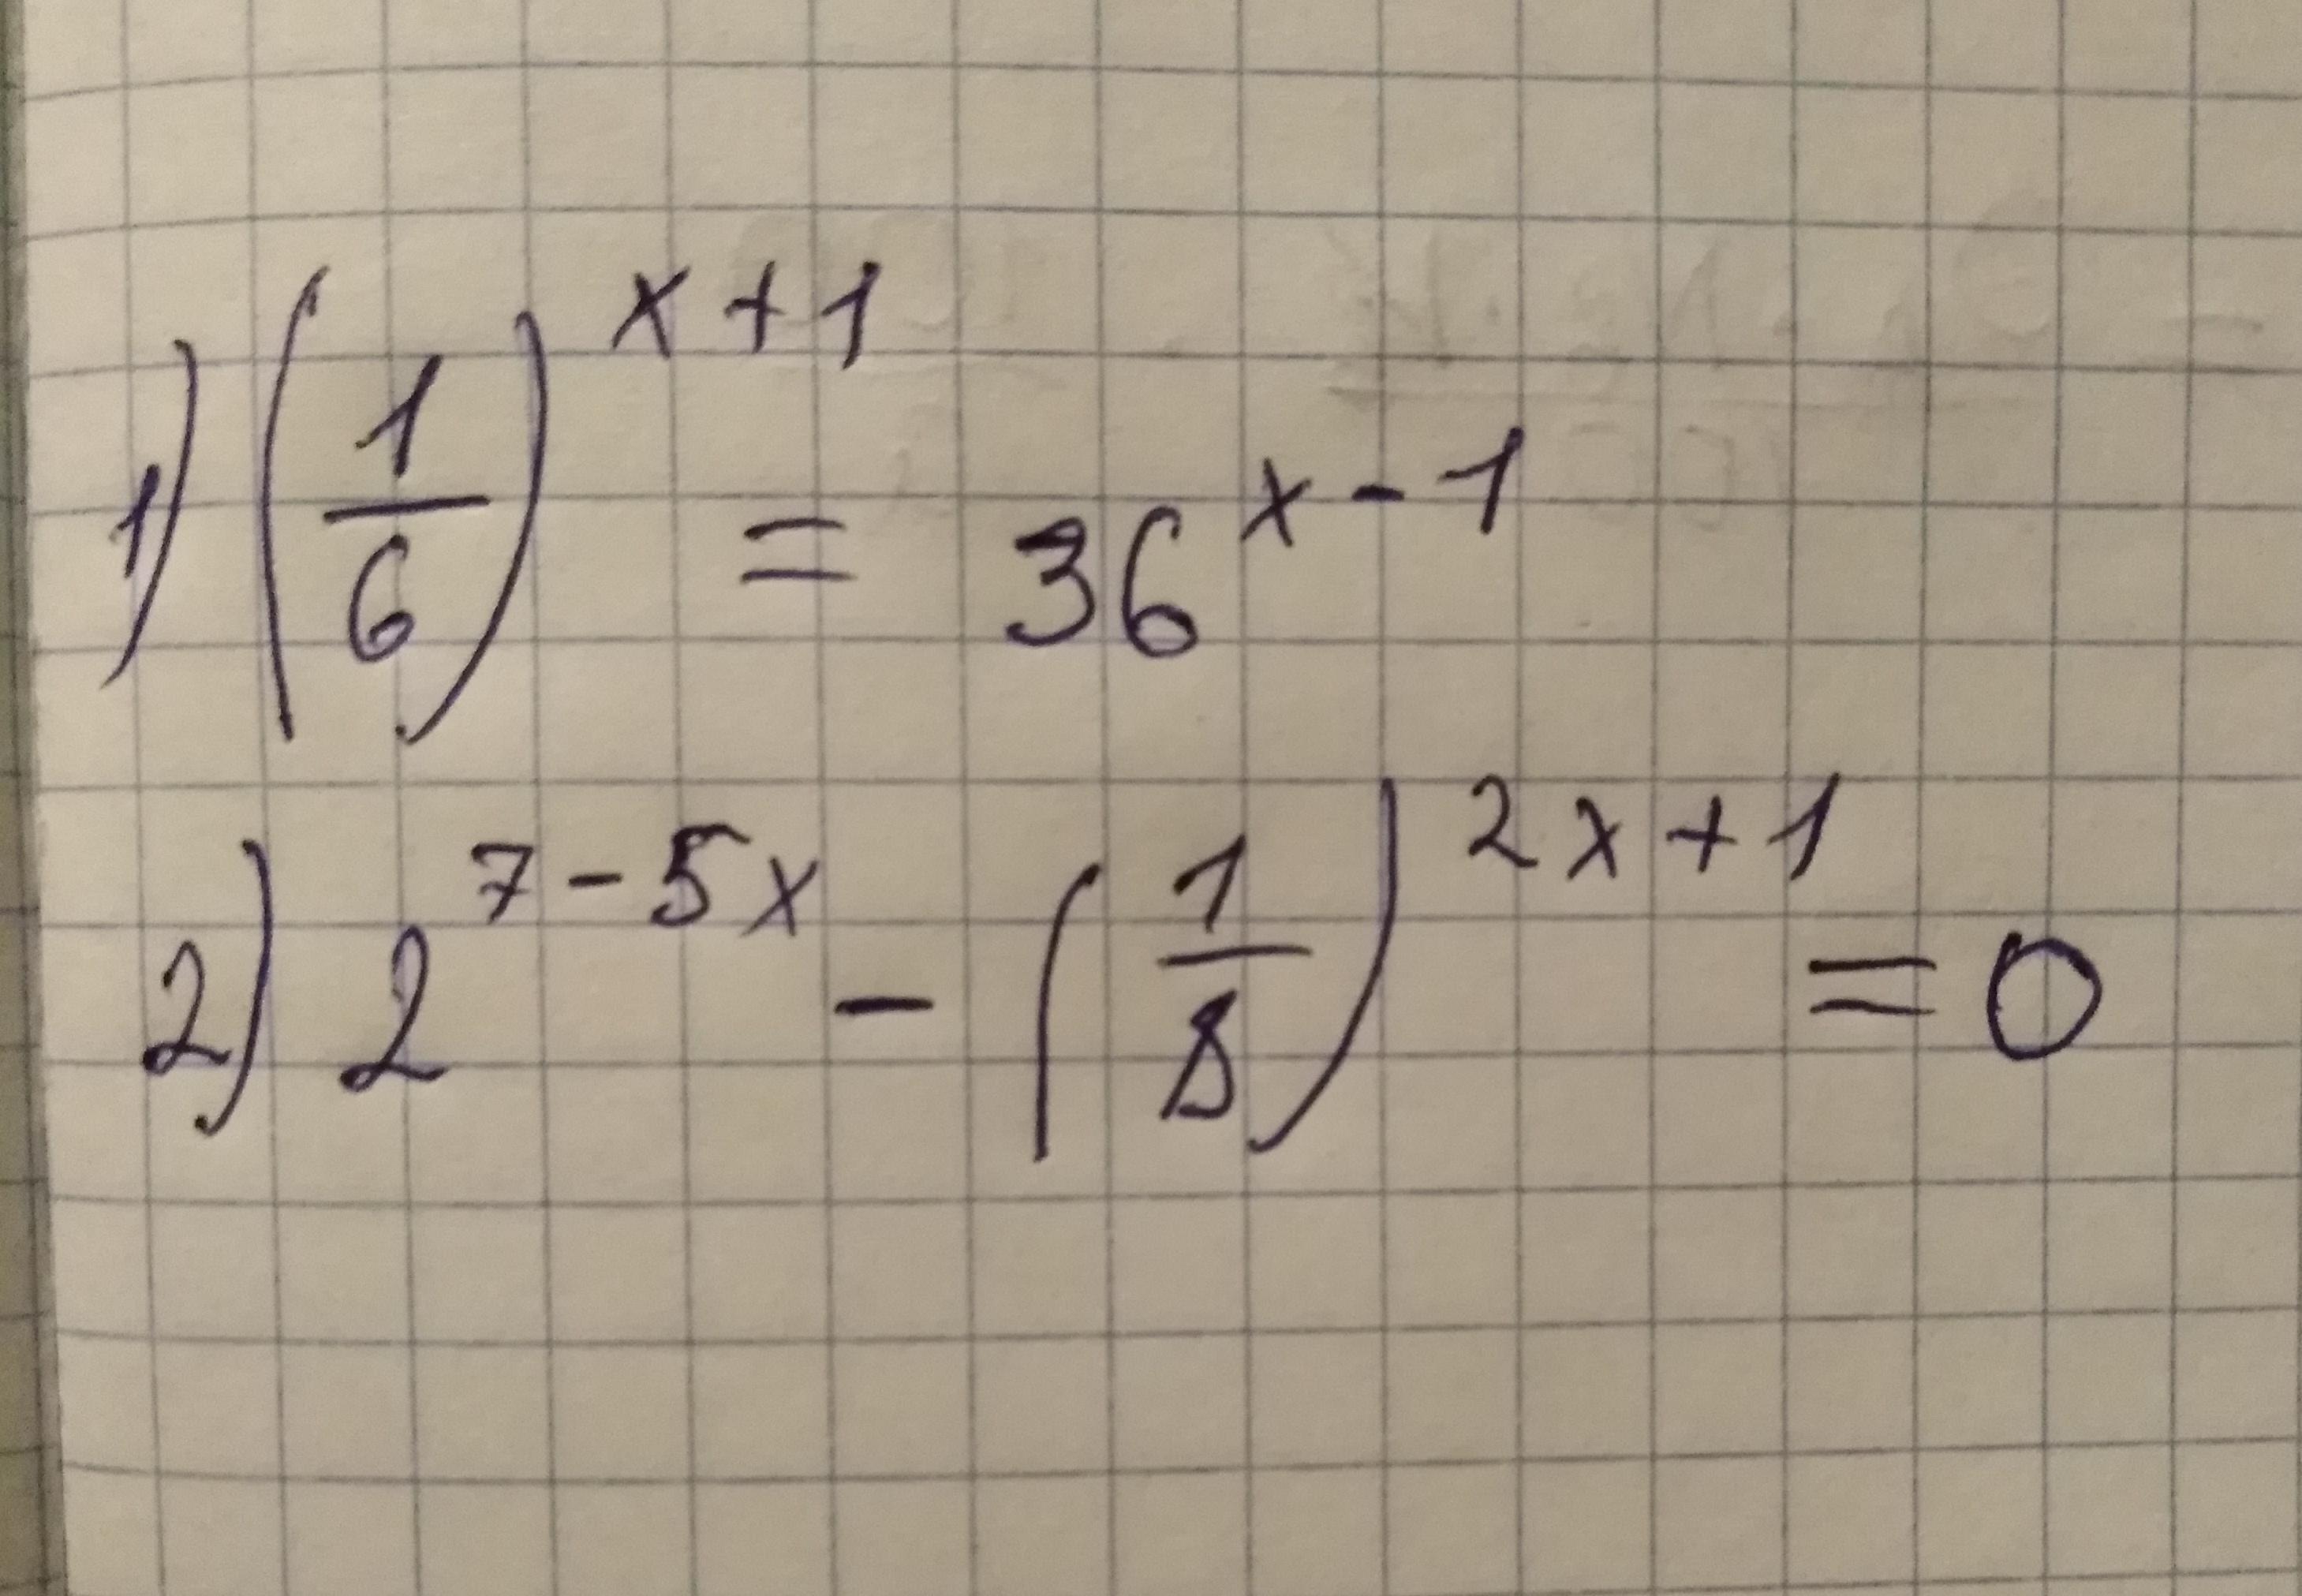 1) (1/6)^(x+1) = 36^(x-1)
2) 2^(7-5x) - (1/8)^(2x+1) = 0